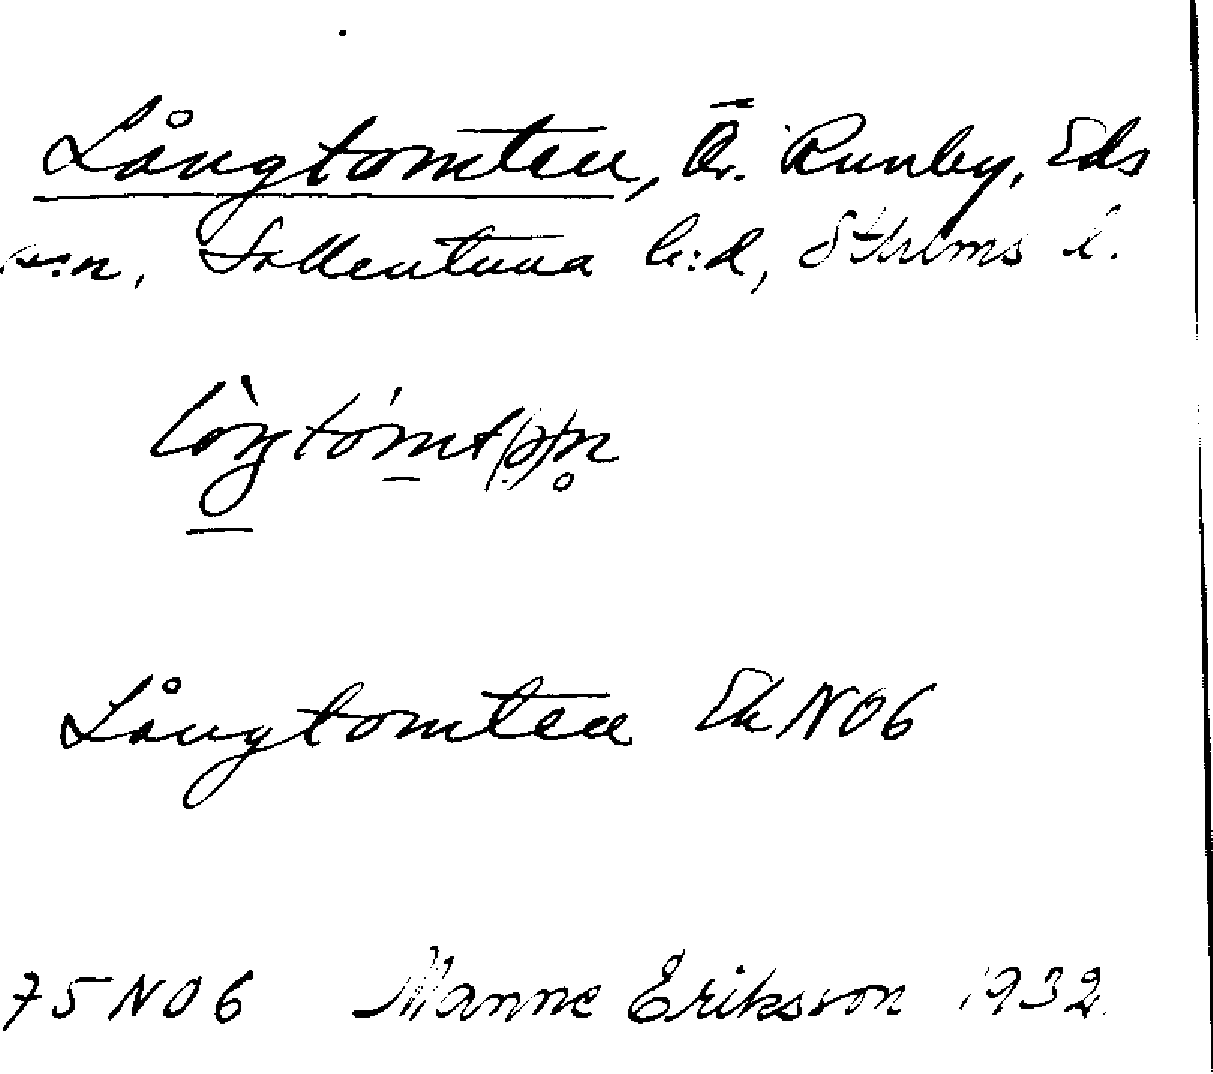 Långtomten, Ör. Runby, Eds
sn, Sollentuna h:d, Sthlms l.
Långtomten Ek NO6
75 NO6 Manne Eriksson 1932